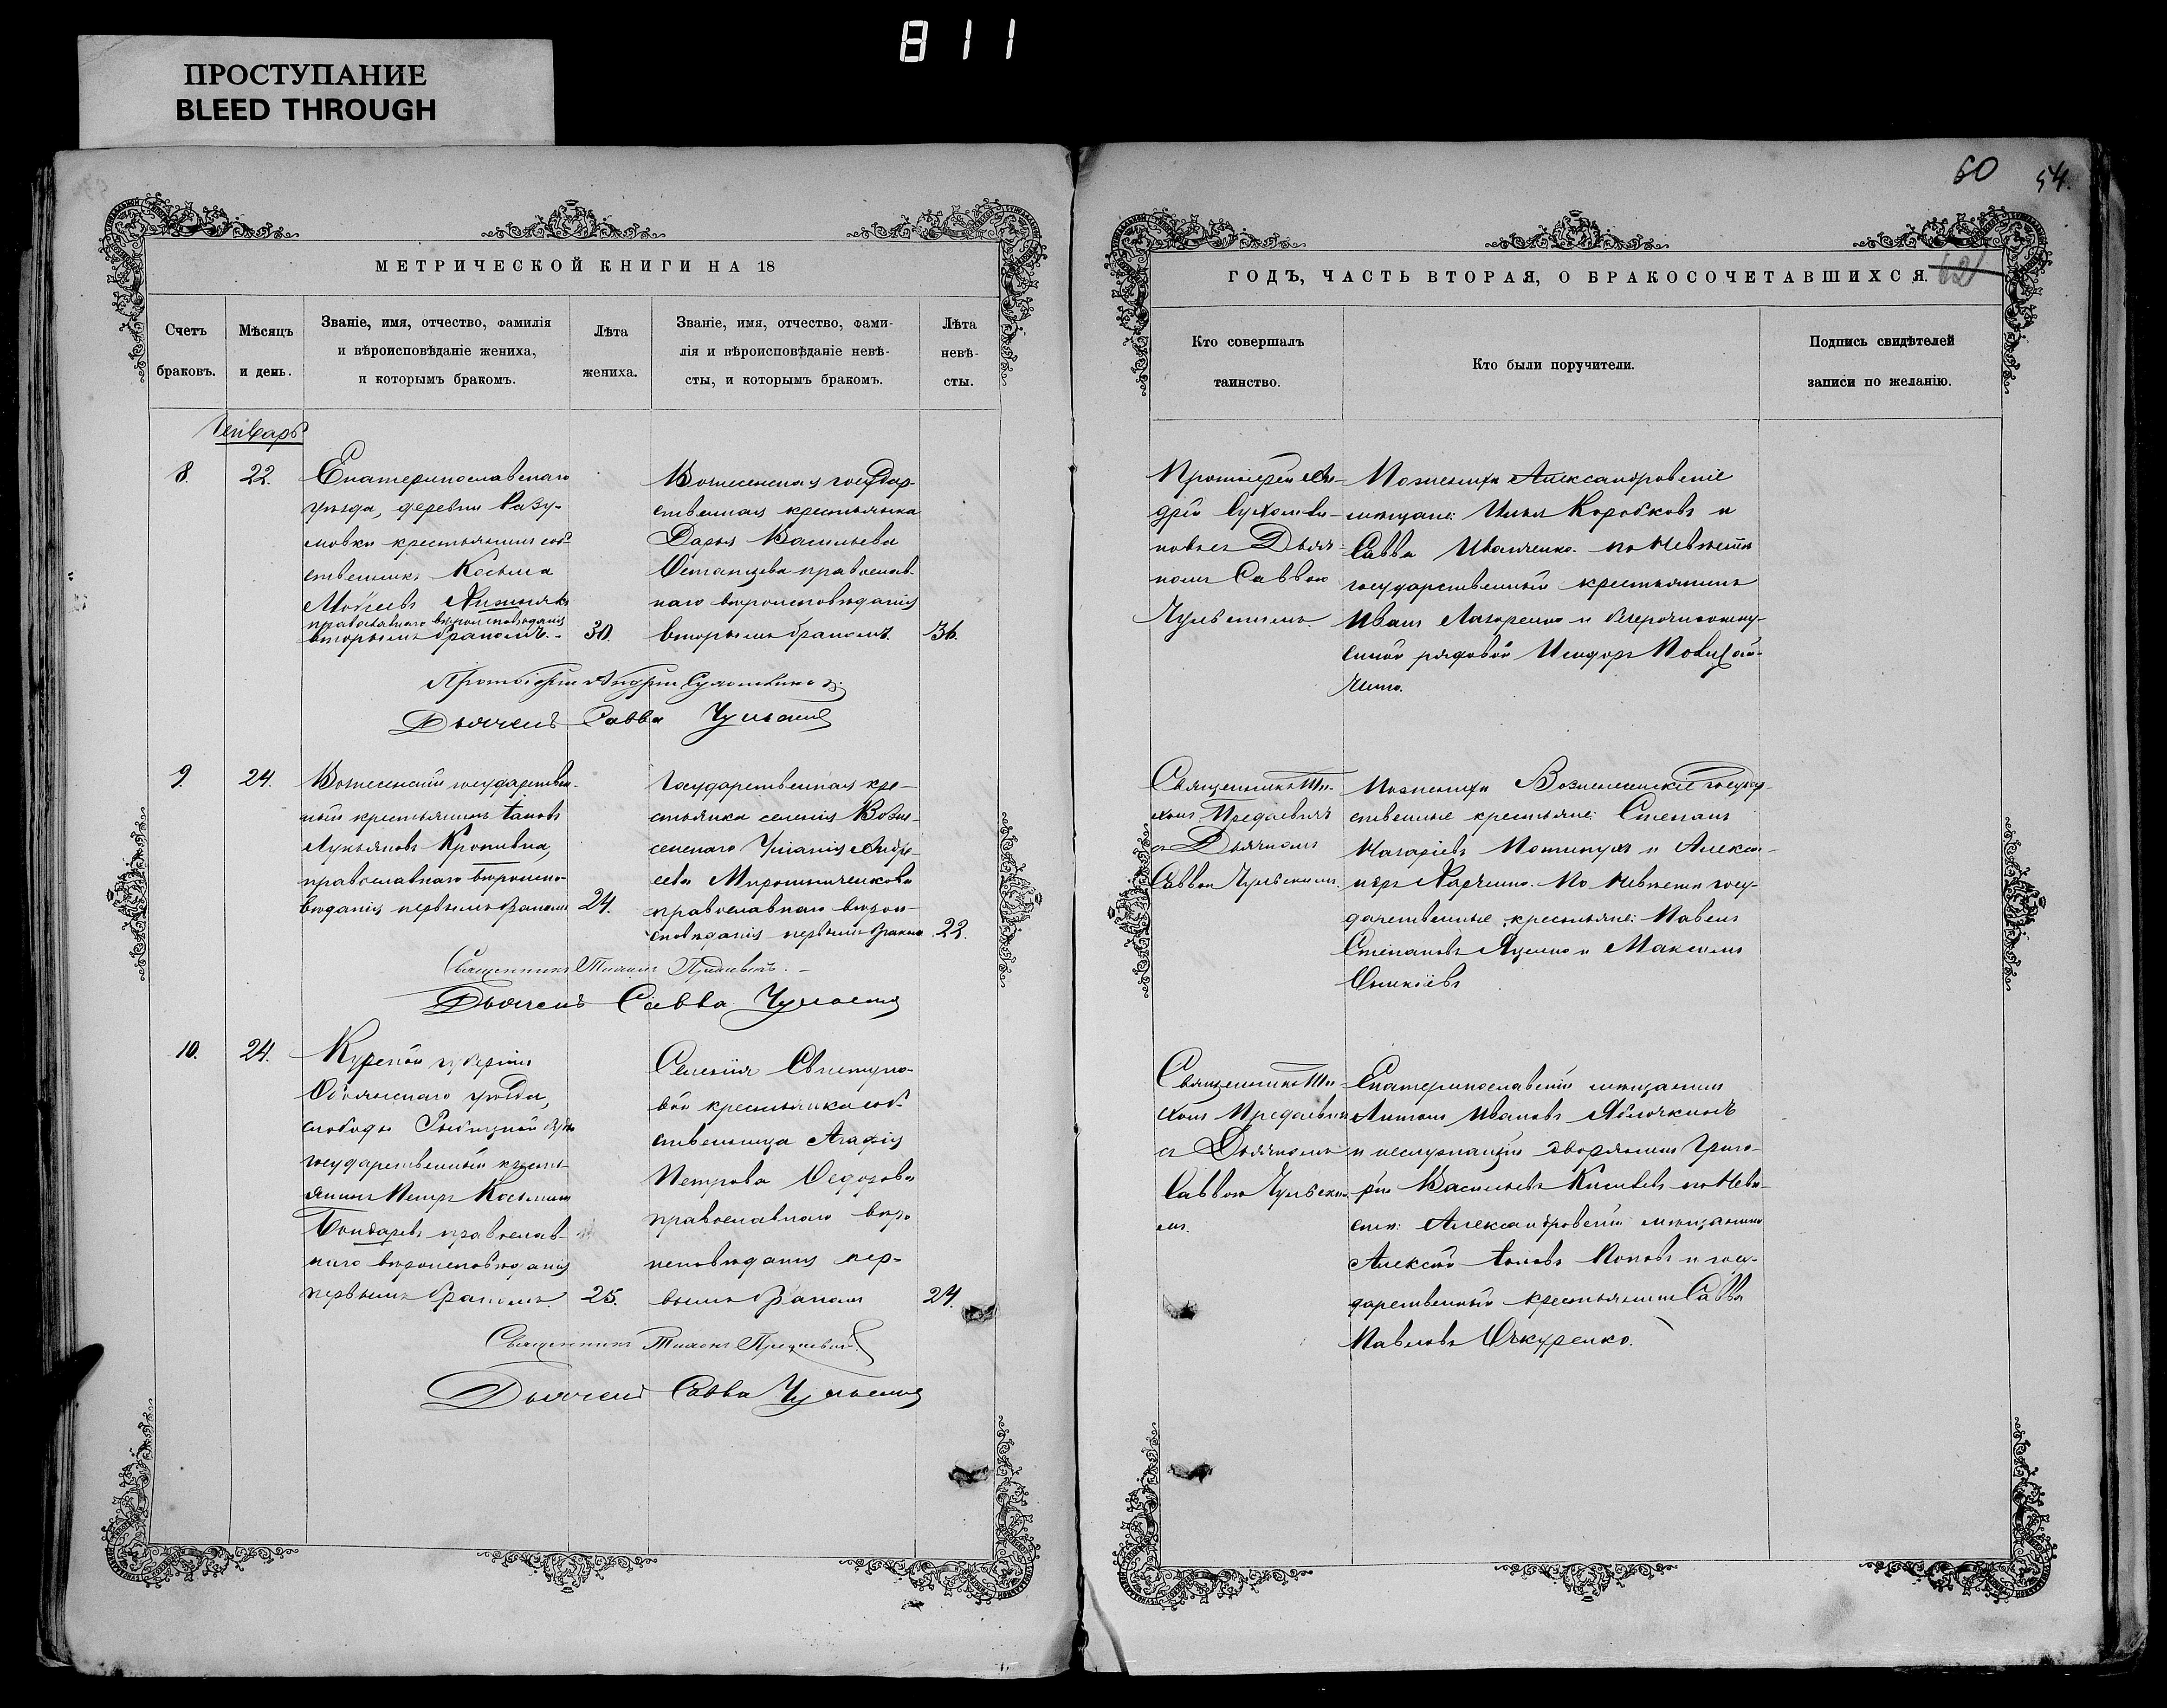 811
ПРОСТУПАНИЕ
BLEED THROUGH
МЕТРИЧЕСКОЙ КНИГИ НА 18
Счетъ браковъ.
Мѣсяцъ и день.
Званіе, имя, отчество, фамилія
и вѣроисповѣданіе жениха,
и которымъ бракомъ.
Лѣта жениха.
Званіе, имя, отчество, фами-
лія и вѣроисповѣданіе невѣ-
сты, и которымъ бракомъ.
Лѣта невѣ-
сты.
Январь
8. 22.
Екатеринославскаго
уѣзда, деревни Разу-
мовки крестьянинъ соб-
ственникъ Косьма
Моисеевъ
православнаго вѣроисповѣданія
вторымъ бракомъ.
30.
Вознесенская государ-
ственная крестьянка
Дарья Васильева
Остапцева православ-
наго вѣроисповѣданія
вторымъ бракомъ
36.
Протоіерей Андрей
Дьячекъ Савва
9. 24.
Вознесенскій государствен-
ный крестьянинъ
Лукьяновъ Кропивка,
православнаго вѣроиспо-
вѣданія первымъ бракомъ
24.
Государственная кре-
стьянка селенія Возне-
сенскаго Андре-
ева Мирошниченкова
православнаго вѣрои-
сповѣданія первымъ бракомъ
22.
Священникъ Тихонъ
Дьячекъ Савва
10. 24.
Курской губерніи
Обоянскаго уѣзда,
слободы
государственный кресть-
янинъ Петръ Косьминъ
Бондаревъ православ-
наго вѣроисповѣданія
первымъ бракомъ.
25.
Селенія Свистуно-
вой крестьянка соб-
ственница Агафія
Петрова Федорова
православнаго вѣро
исповѣданія пер-
вымъ бракомъ
24.
Священникъ Тихонъ
Дьячекъ Савва
60
54.
ГОДЪ, ЧАСТЬ ВТОРАЯ, О БРАКОСОЧЕТАВШИХСЯ.
Кто совершалъ
таинство.
Кто были поручители.
Подпись свидѣтелей
записи по желанію.
Протоіерей Ан-
дрей
Дьяч-
комъ Саввою
По женихѣ Александровскіе
мѣщане: Илья Коробковъ и
Савва Иванченко. по невѣстѣ
государственный крестьянинъ
Иванъ Лазоренко и безсрочноотпу-
скной рядовой Исидоръ
Священникъ Ти-
хонъ
съ Дьячкомъ
Саввою
По женихѣ Вознесенскіе государ-
ственные крестьяне: Степанъ
и Алексан-
дръ Харченко. По невѣстѣ госу-
дарственные крестьяне: Павелъ
Степановъ Яценко и Максимъ
Священникъ Ти-
хонъ
съ Дьячкомъ
Саввою
Екатеринославскій мѣщанинъ
Антонъ Ивановъ Яблочкинъ
и неслужащій дворянинъ Григо-
рій Васильевъ по невѣ-
стѣ: Александровскій мѣщанинъ
Алексѣй Поповъ и госу-
дарственный крестьянинъ Савва
Павловъ Очкуренко.